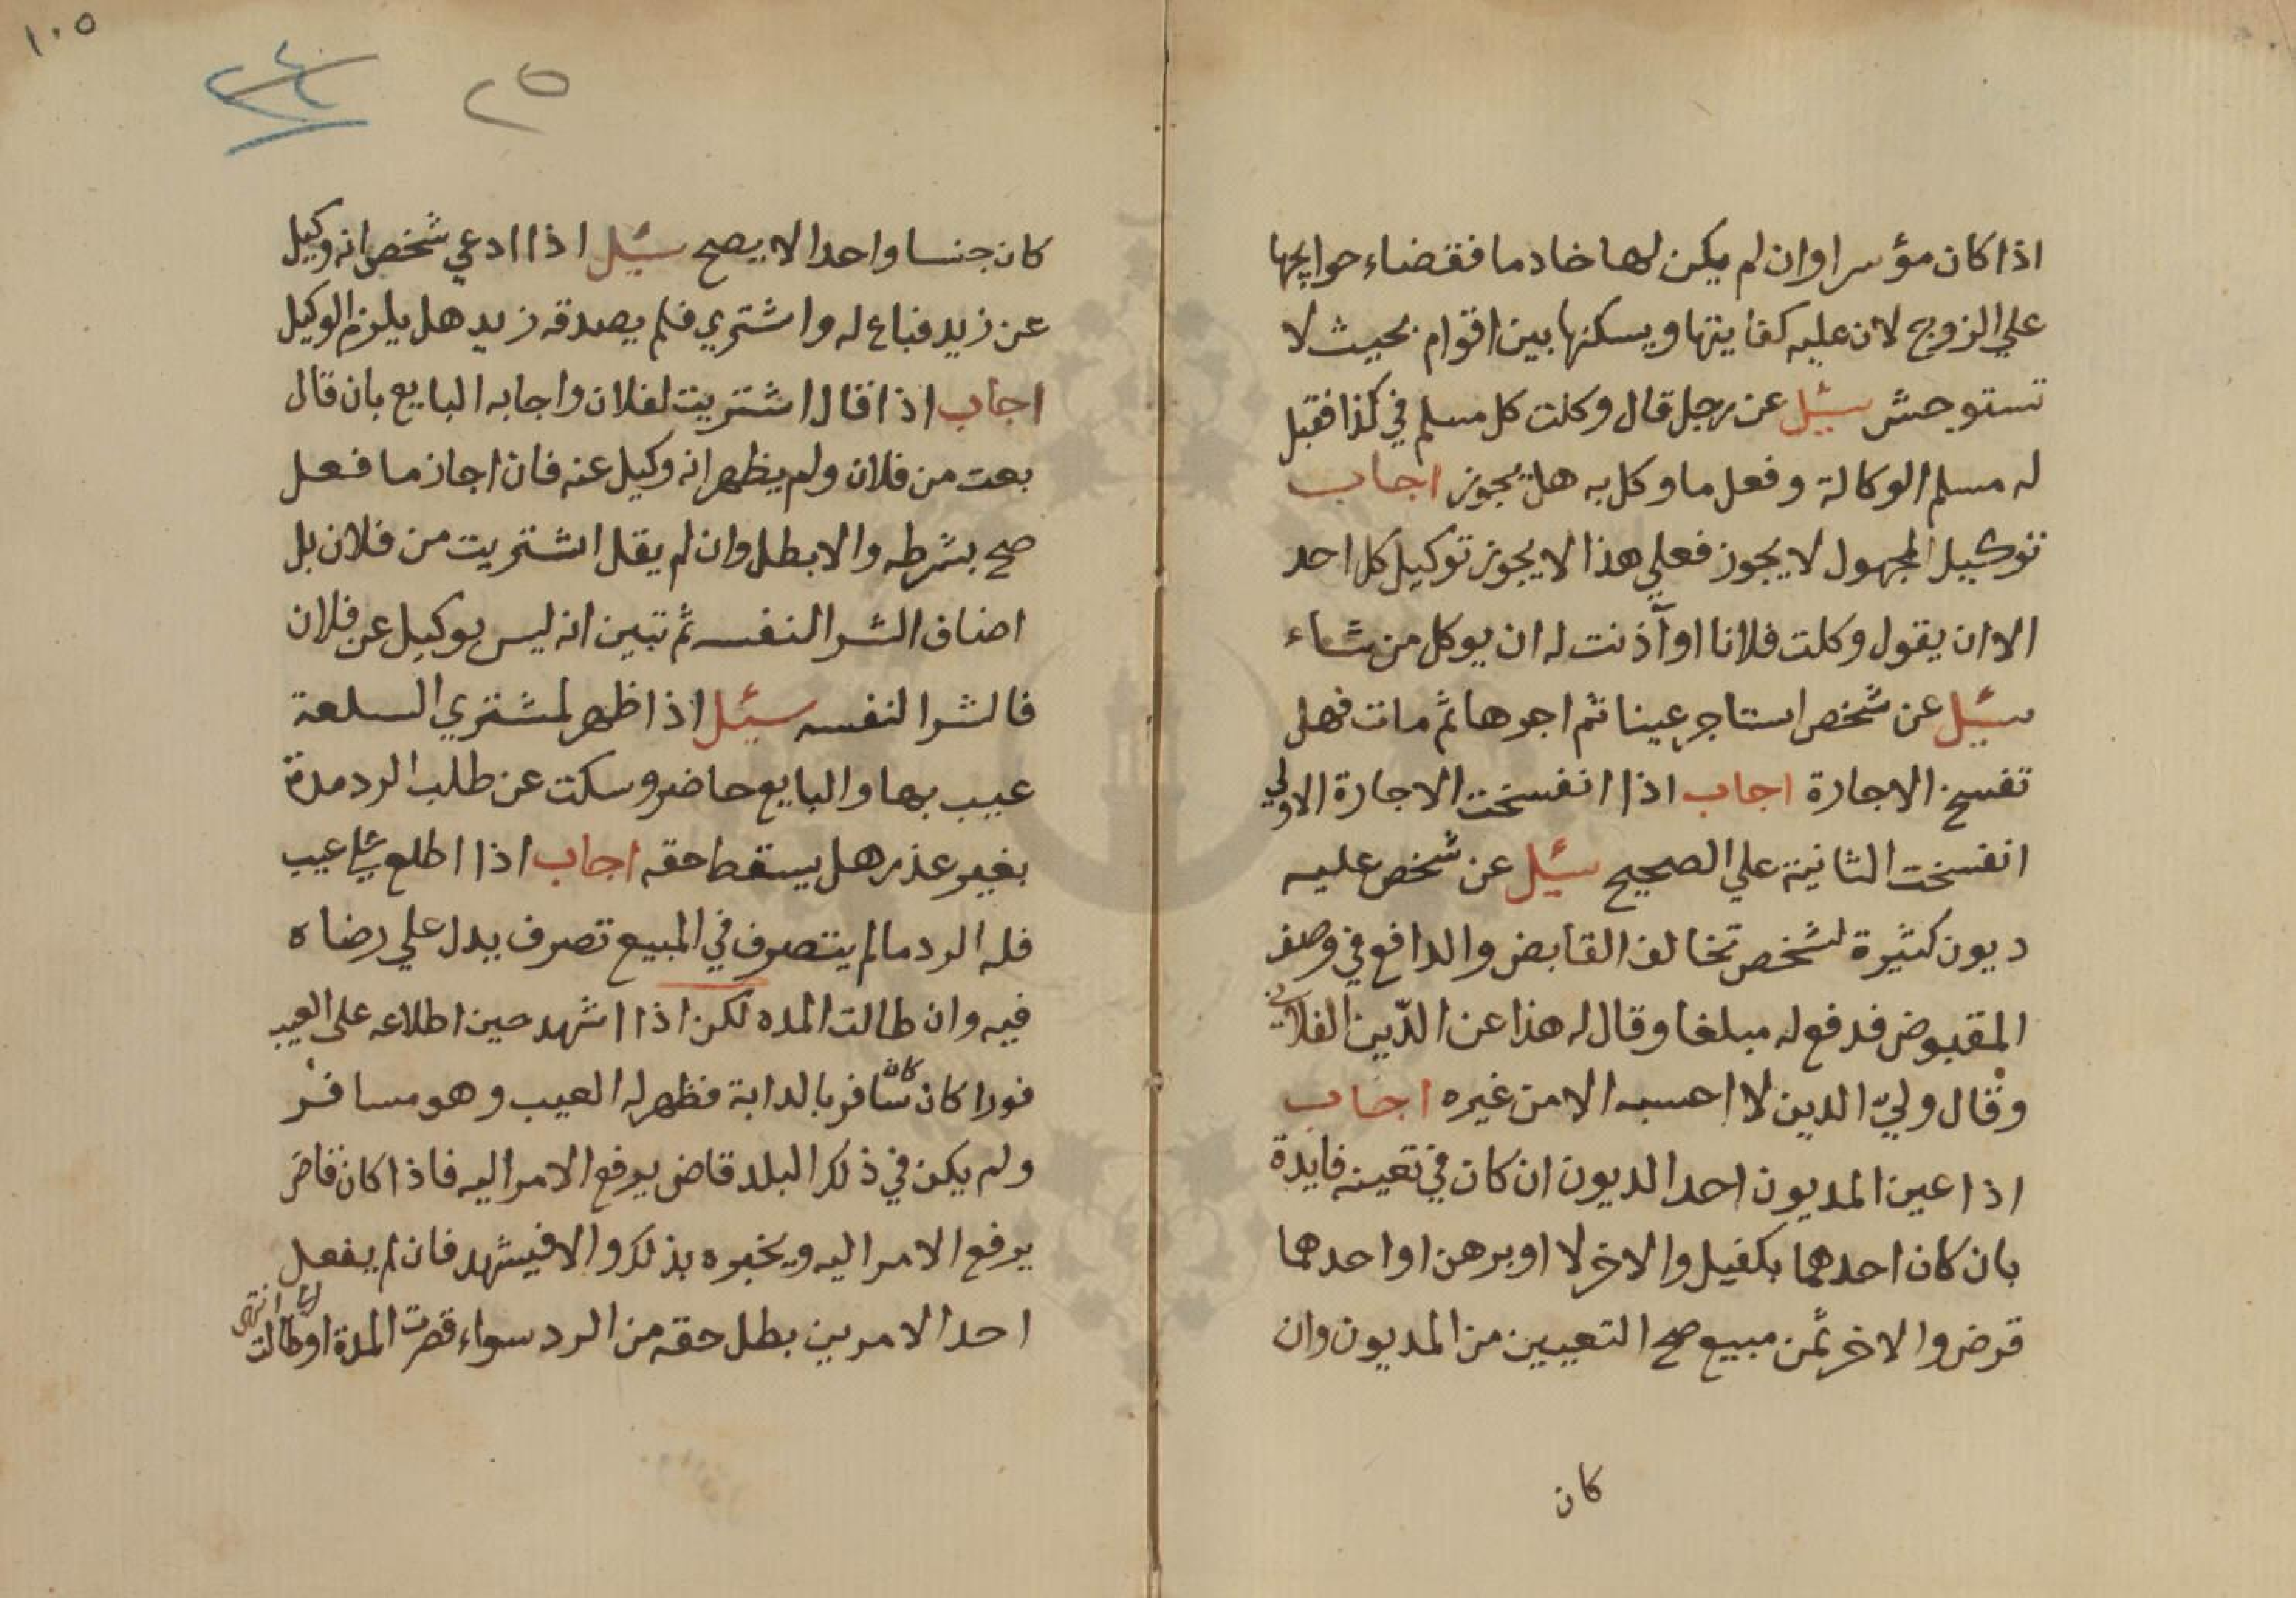 اذا كان مؤسرا وان لم يكن لها خادما فقضاء حوايجها
علي الزوج لان عليه كفايتها ويسكنها بين اقوام بحيث لا
تستوحش سئيل عن رجل قال وكلت كل مسلم في كذا فقبل
له مسلم الوكالة وفعل ما وكل به هل يجوز اجاب
توكيل المجهول لا يجوز فعلي هذا لا يجوز توكيل كل احد
الا ان يقول وكلت فلانا او آذنت له ان يوكل من شاء
سئيل عن شخص استاجر عينا ثم اجرها ثم مات فهل
تفسخ الاجارة اجاب اذا انفسخت الاجارة الاولي
انفسخت الثانية علي الصحيح سئيل عن شخص عليه
ديون كثيرة لشخص تخالف القابض والدافع في وصف
المقبوض فدفع له مبلغا وقال له هذا عن الدّين الفلاني
وقال ولي الدين لا احسبه الا من غيره اجاب
اذا عين المديون احد الديون ان كان في تعينه فايدة
بان كان احدهما بكفيل والاخر لا او برهن او احدهما
قرض والاخر ثمن مبيع صح التعيين من المديون وان
كان
١٠٥
٢٥
كان جنسا واحدا لا يصح سئيل اذا ادعي شخص انه وكيل
عن زيد فباع له واشتري فلم يصدقه زيد هل يلزم الوكيل
اجاب اذا قال اشتريت لفلان واجابه البايع بان قال
بعت من فلان ولم يظهر انه وكيل عنه فان اجاز ما فعل
صح بشرطه والا بطل وان لم يقل اشتريت من فلان بل
اضاف الشرا لنفسه ثم تبين انه ليس بوكيل عن فلان
فالشرا لنفسه سئيل اذا ظهر لمشتري السلعة
عيب بها والبايع حاضر وسكت عن طلب الرد مدة
بغير عذر هل يسقط حقه اجاب اذا اطلع علي عيب
فله الرد ما لم يتصرف في المبيع تصرف يدل علي رضاه
فيه وان طالت المده لكن اذا اشهد حين اطلاعه على العيب
فورا كان كان سافر بالدابة فظهر له العيب وهو مسافر
ولم يكن في ذلك البلد قاض يرفع الامر اليه فاذا كان قاض
يرفع الامر اليه ويخبره بذلك والا فيشهد فان لم يفعل
احد الامرين بطل حقه من الرد سواء قصرت المدة او طالت انتهى